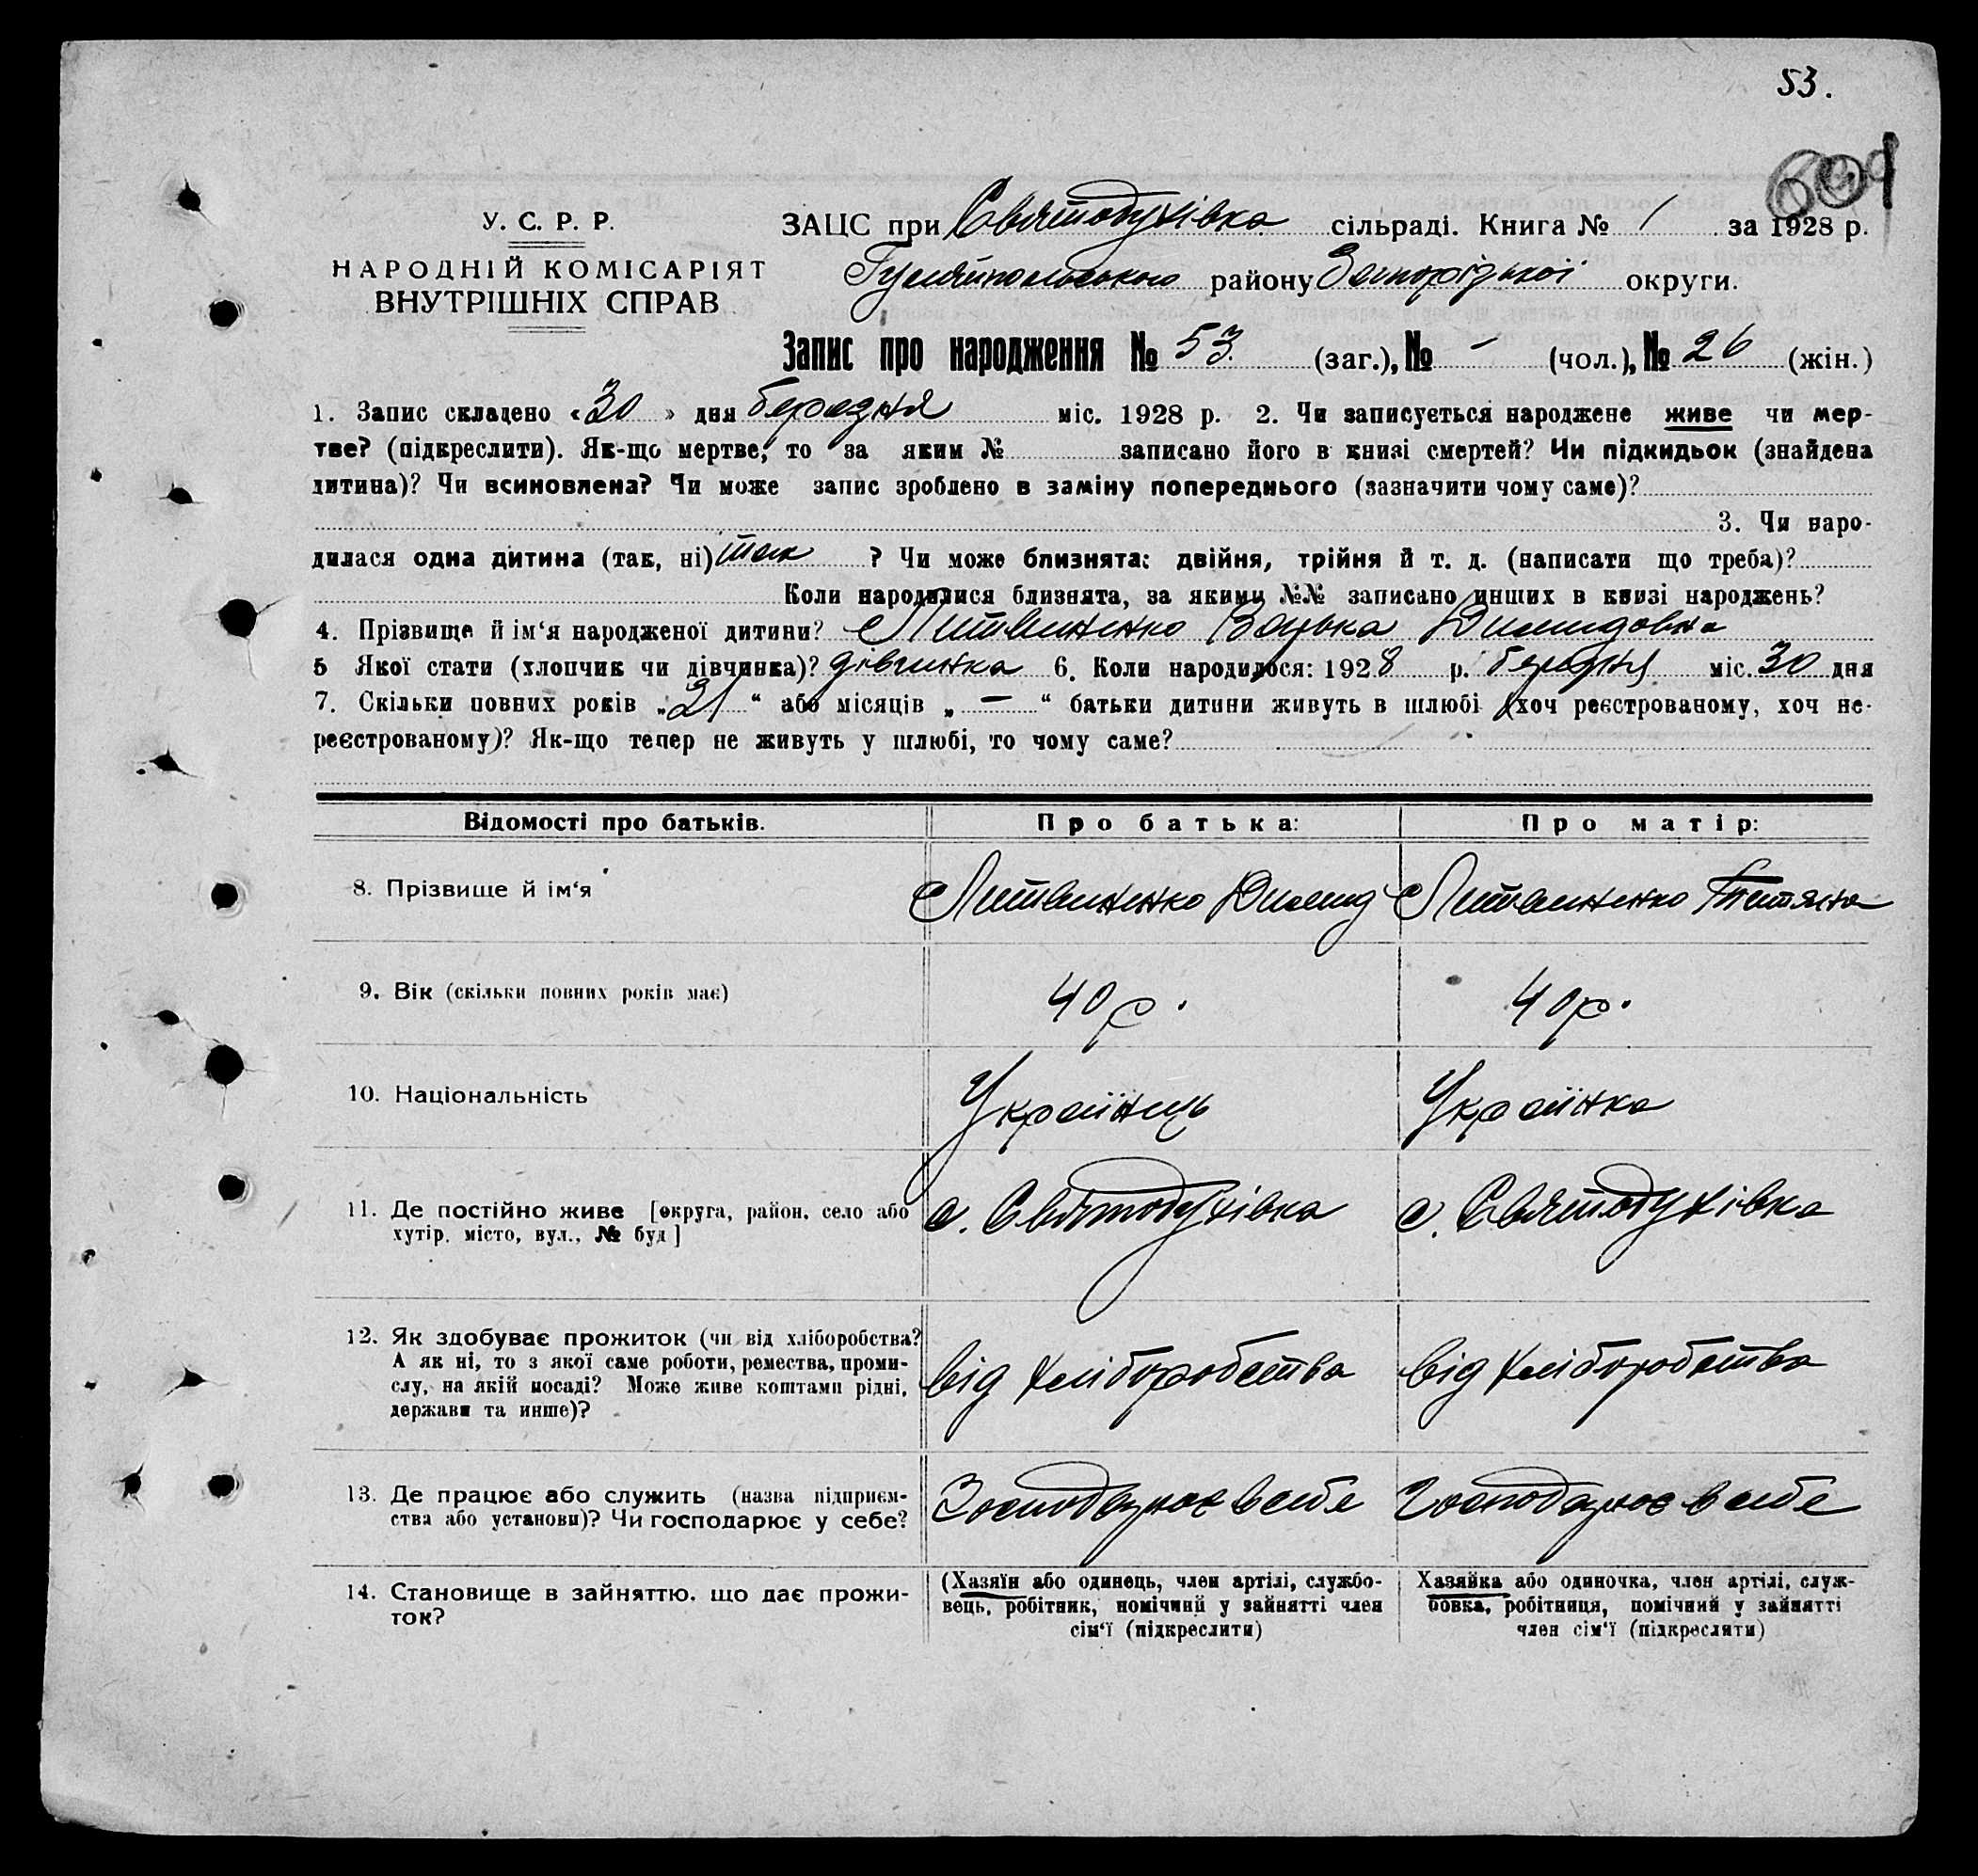 53.
У. С. Р. Р.
НАРОДНІЙ КОМІСАРІЯТ
ВНУТРІШНІХ СПРАВ
ЗАЦС при Святодухівка сільраді. Книга № 1 за 1928 р.
Гуляйпольського району Запорізької округи.
Запис про народження № 53. (заг.), № - (чол.), № 26 (жін.)
1. Запис складено « 30 » дня березня міс. 1928 р. 2. Чи записується народжене живе чи мер-
тве? (підкреслити). Як-що мертве, то за яким № записано його в книзі смертей? Чи підкидьок (знайдена
дитина)? Чи всиновлена? Чи може запис зроблено в заміну попереднього (зазначити чому саме)?
3. Чи наро-
дилася одна дитина (так, ні) так ? Чи може близнята: двійня, трійня й т. д. (написати що треба)?
Коли народилися близнята, за якими №№ записано инших в книзі народжень?
4. Прізвище й ім‘я народженої дитини? Литвиненко
5 Якої стати (хлопчик чи дівчинка)? дівчинка 6. Коли народилося: 1928 р. березня міс. 30 дня
7. Скільки повних років „ 21 “ або місяців „ — “ батьки дитини живуть в шлюбі (хоч реєстрованому, хоч не-
реєстрованому)? Як-що тепер не живуть у шлюбі, то чому саме?
Відомості про батьків.
Про батька:
Про матір:
8. Прізвище й ім‘я
Литвиненко
Литвиненко Тетяна
9. Вік (скільки повних років має)
40 р.
40 р.
10. Національність
Українець
Українка
11. Де постійно живе [округа, район, село або
хутір, місто, вул., № буд]
с. Святодухівка
с. Святодухівка
12. Як здобуває прожиток (чи від хліборобства?
А як ні, то з якої саме роботи, ремества, проми-
слу, на якій посаді? Може живе коштами рідні,
держави та инше)?
від хліборобства
від хліборобства
13. Де працює або служить (назва підприєм-
ства або установи)? Чи господарює у себе?
Господарює в себе
Господарює в себе
14. Становище в зайняттю, що дає прожи-
ток?
(Хазяїн або одинець, член артілі, службо-
вець, робітник, помічний у зайнятті член
сім‘ї (підкреслити)
Хазяйка або одиночка, член артілі, служ-
бовка, робітниця, помічний у зайнятті
член сім‘ї (підкреслити)